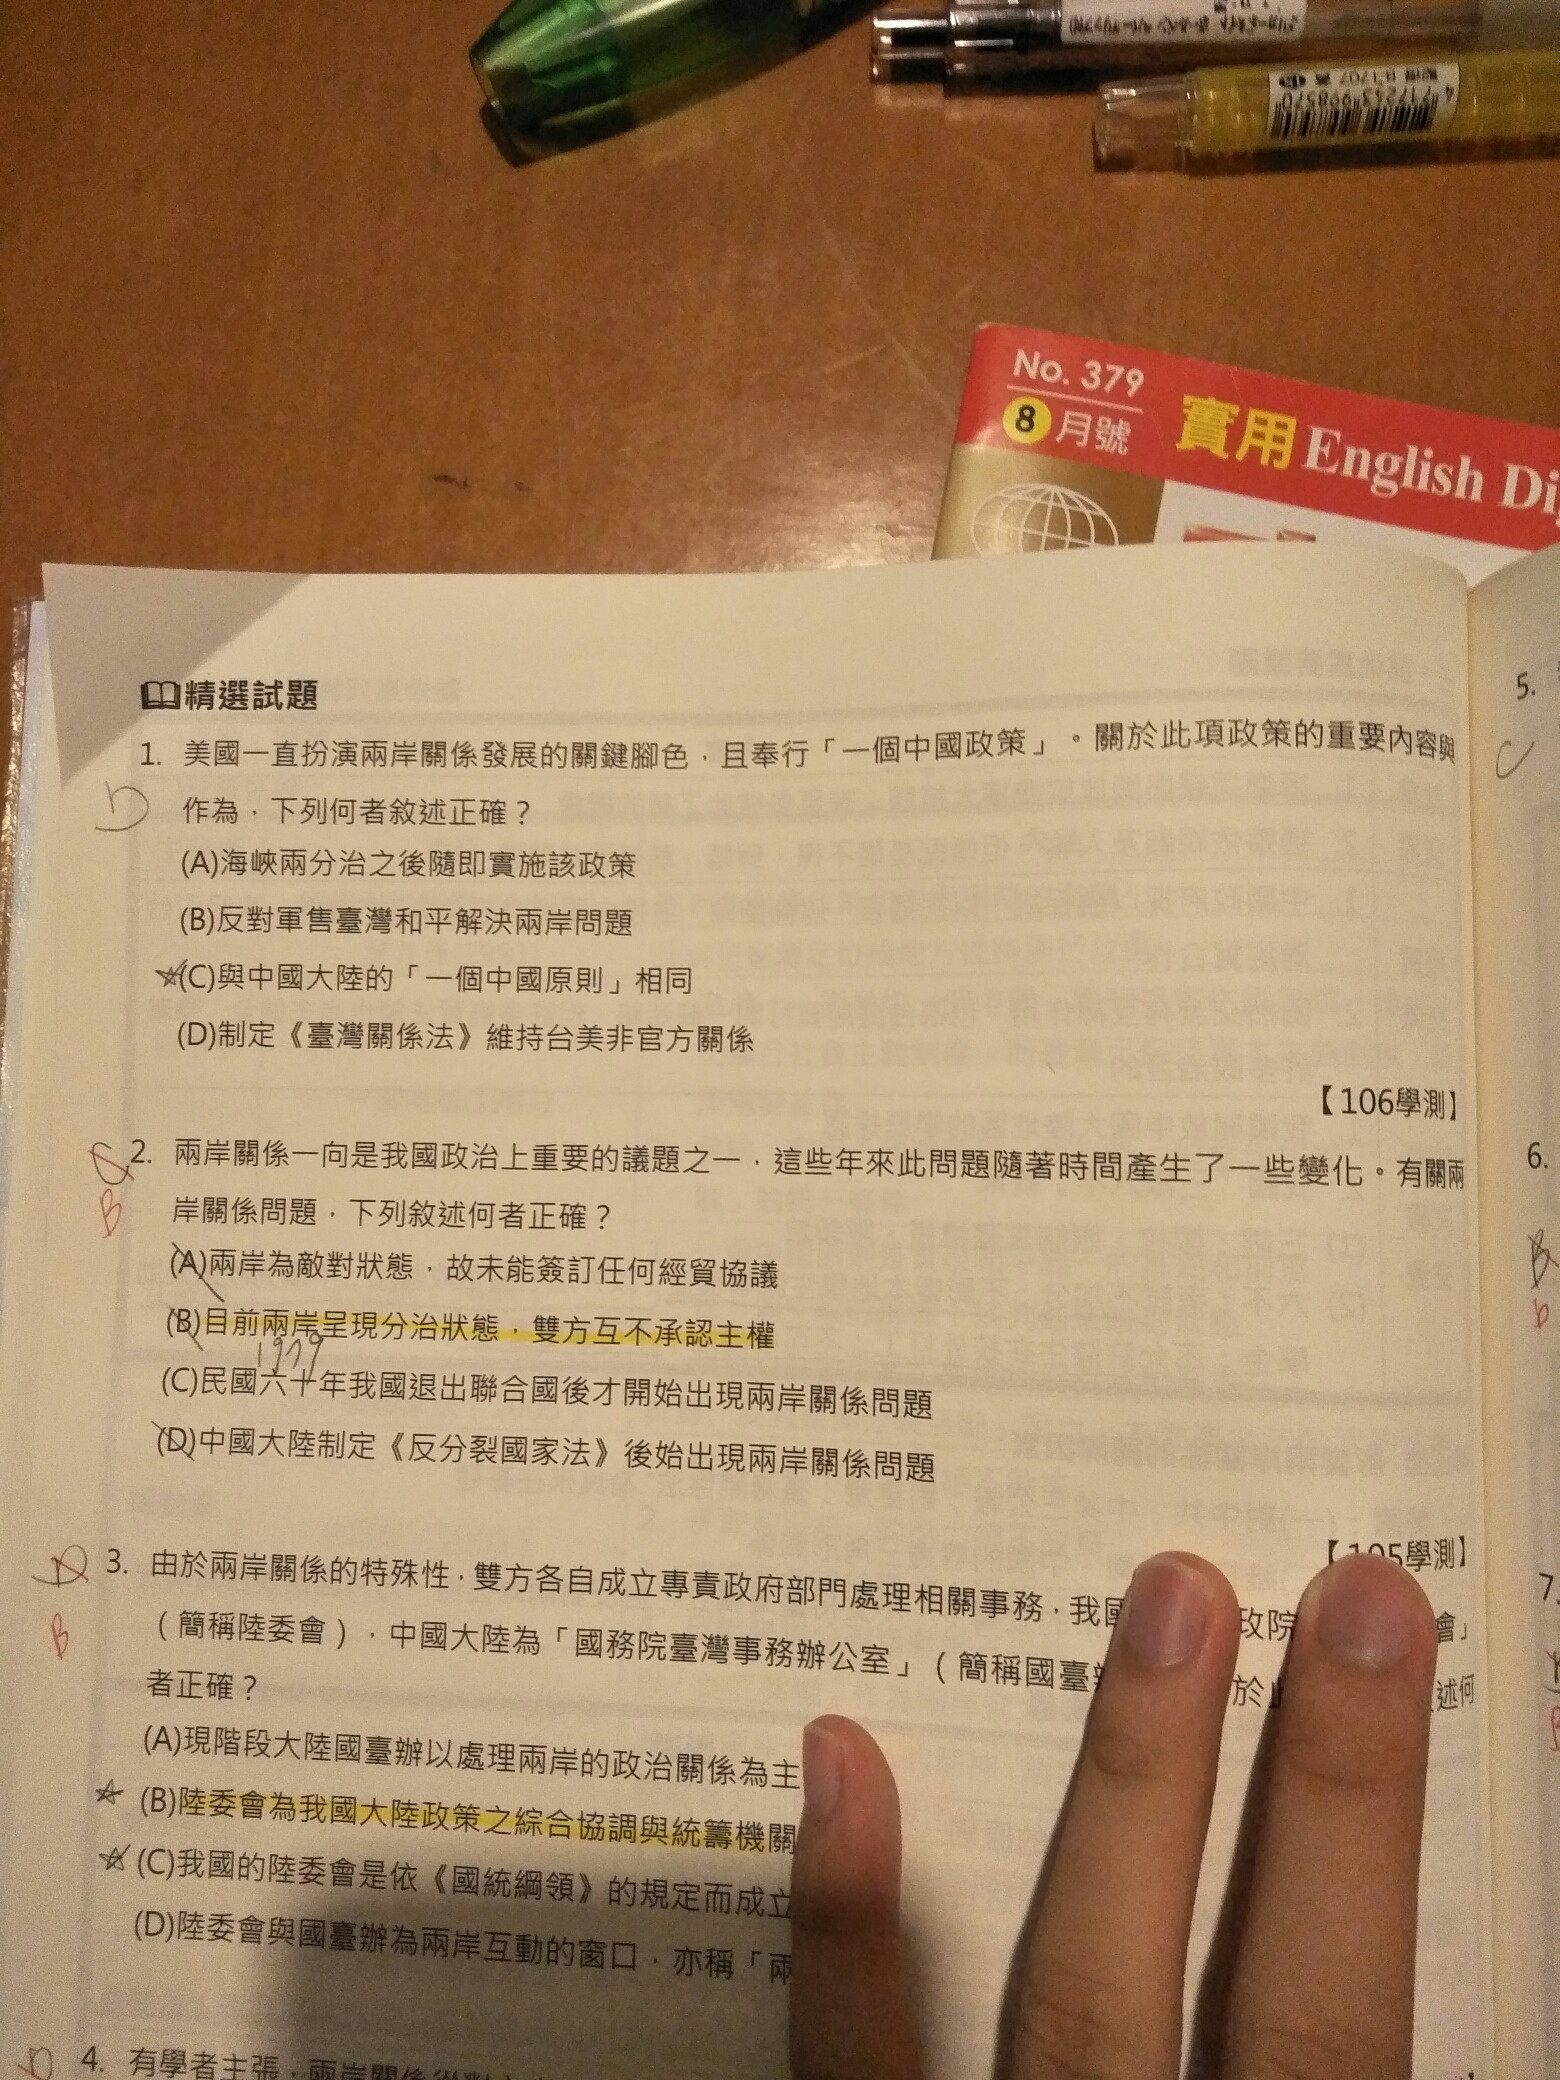 No. 379
8月號
實用English Di
4717243998570
精選試題
1. 美國一直扮演兩岸關係發展的關鍵腳色，且奉行「一個中國政策」。關於此項政策的重要內容與
作為，下列何者敘述正確？
D
(A)海峽兩分治之後隨即實施該政策
(B)反對軍售臺灣和平解決兩岸問題
☆(C)與中國大陸的「一個中國原則」相同
(D)制定《臺灣關係法》維持台美非官方關係
【106學測】
2. 兩岸關係一向是我國政治上重要的議題之一，這些年來此問題隨著時間產生了一些變化。有關兩
B
岸關係問題，下列敘述何者正確？
(A)兩岸為敵對狀態，故未能簽訂任何經貿協議
(B)目前兩岸呈現分治狀態，雙方互不承認主權
1979
(C)民國六十年我國退出聯合國後才開始出現兩岸關係問題
(D)中國大陸制定《反分裂國家法》後始出現兩岸關係問題
【105學測】
D
3. 由於兩岸關係的特殊性，雙方各自成立專責政府部門處理相關事務，我國 政院 會」
B
（簡稱陸委會），中國大陸為「國務院臺灣事務辦公室」（簡稱國臺 於 述何
者正確？
(A)現階段大陸國臺辦以處理兩岸的政治關係為主
☆(B)陸委會為我國大陸政策之綜合協調與統籌機關
☆(C)我國的陸委會是依《國統綱領》的規定而成立
(D)陸委會與國臺辦為兩岸互動的窗口，亦稱「兩
D
4. 有學者主張，兩岸關係從對
5.
C
6.
B
b
7.